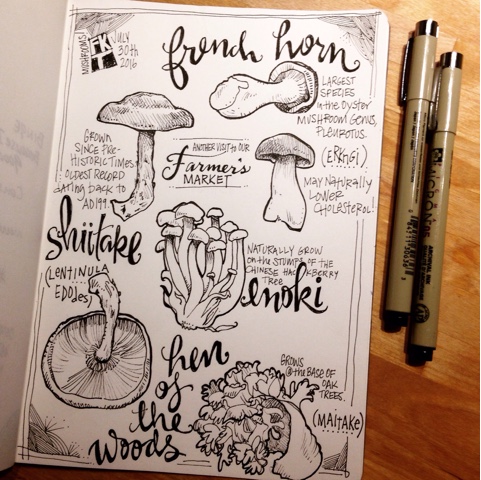 MUSHROOMS
FK
JULY
30th
2016
french horn
LARGEST
SPECIES
in the OYSTER
MUSHROOM GENUS,
PLEUROTUS.
(ERYNGI)
MAY NATURALLY
LOWER
CHOLESTEROL!
GROWN
SINCE PRE-
HISTORIC TIMES
OLDEST RECORD
dating back to
AD199.
ANOTHER VISIT to OUR
Farmer's
MARKET
shiitake
(LENTINULA
EDODES)
NATURALLY GROW
on the STUMPS OF THE
CHINESE HACKBERRY
TREE
enoki
hen
of
the
woods
GROWS
@ the BASE OF
OAK
TREES.
(MAITAKE)
MICRON
ARCHIVAL INK